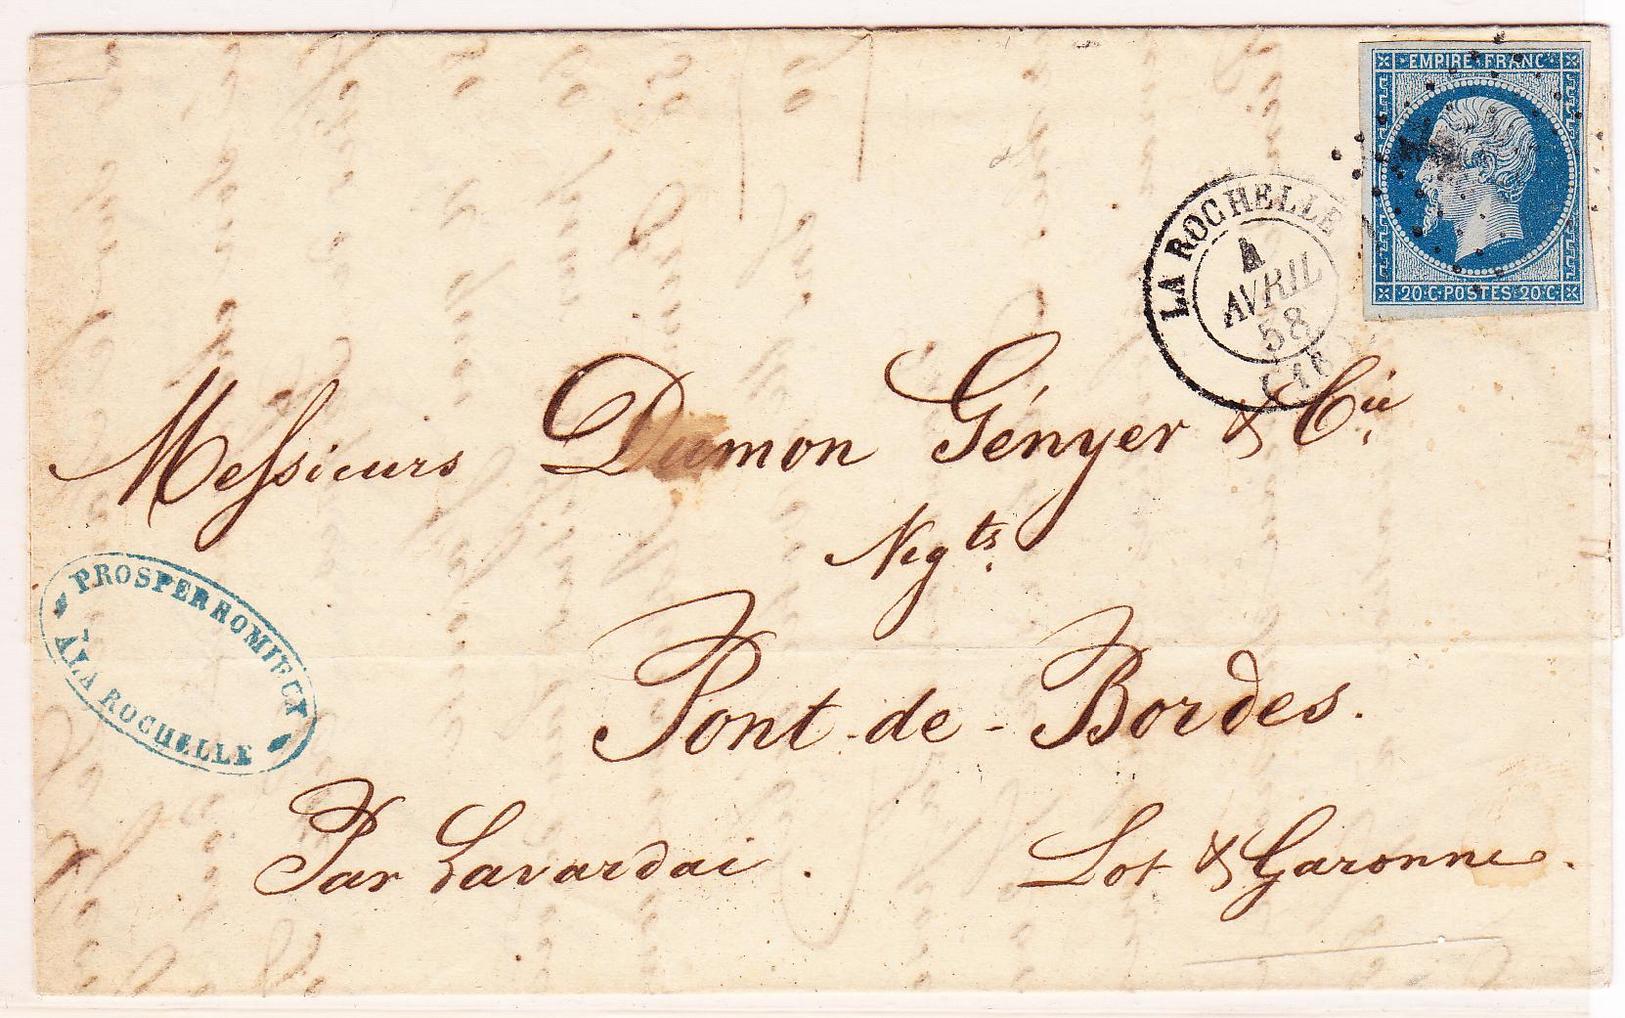 EMPIRE FRANC
20·C·POSTES·20·C
LA ROCHELLE
4
AVRIL
58
Messieurs Dumon Gényer & Cie
Negts.
Pont-de-Bordes.
Par Lavardai.
Lot & Garonne.
PROSPER ROMIEUX
À LA ROCHELLE